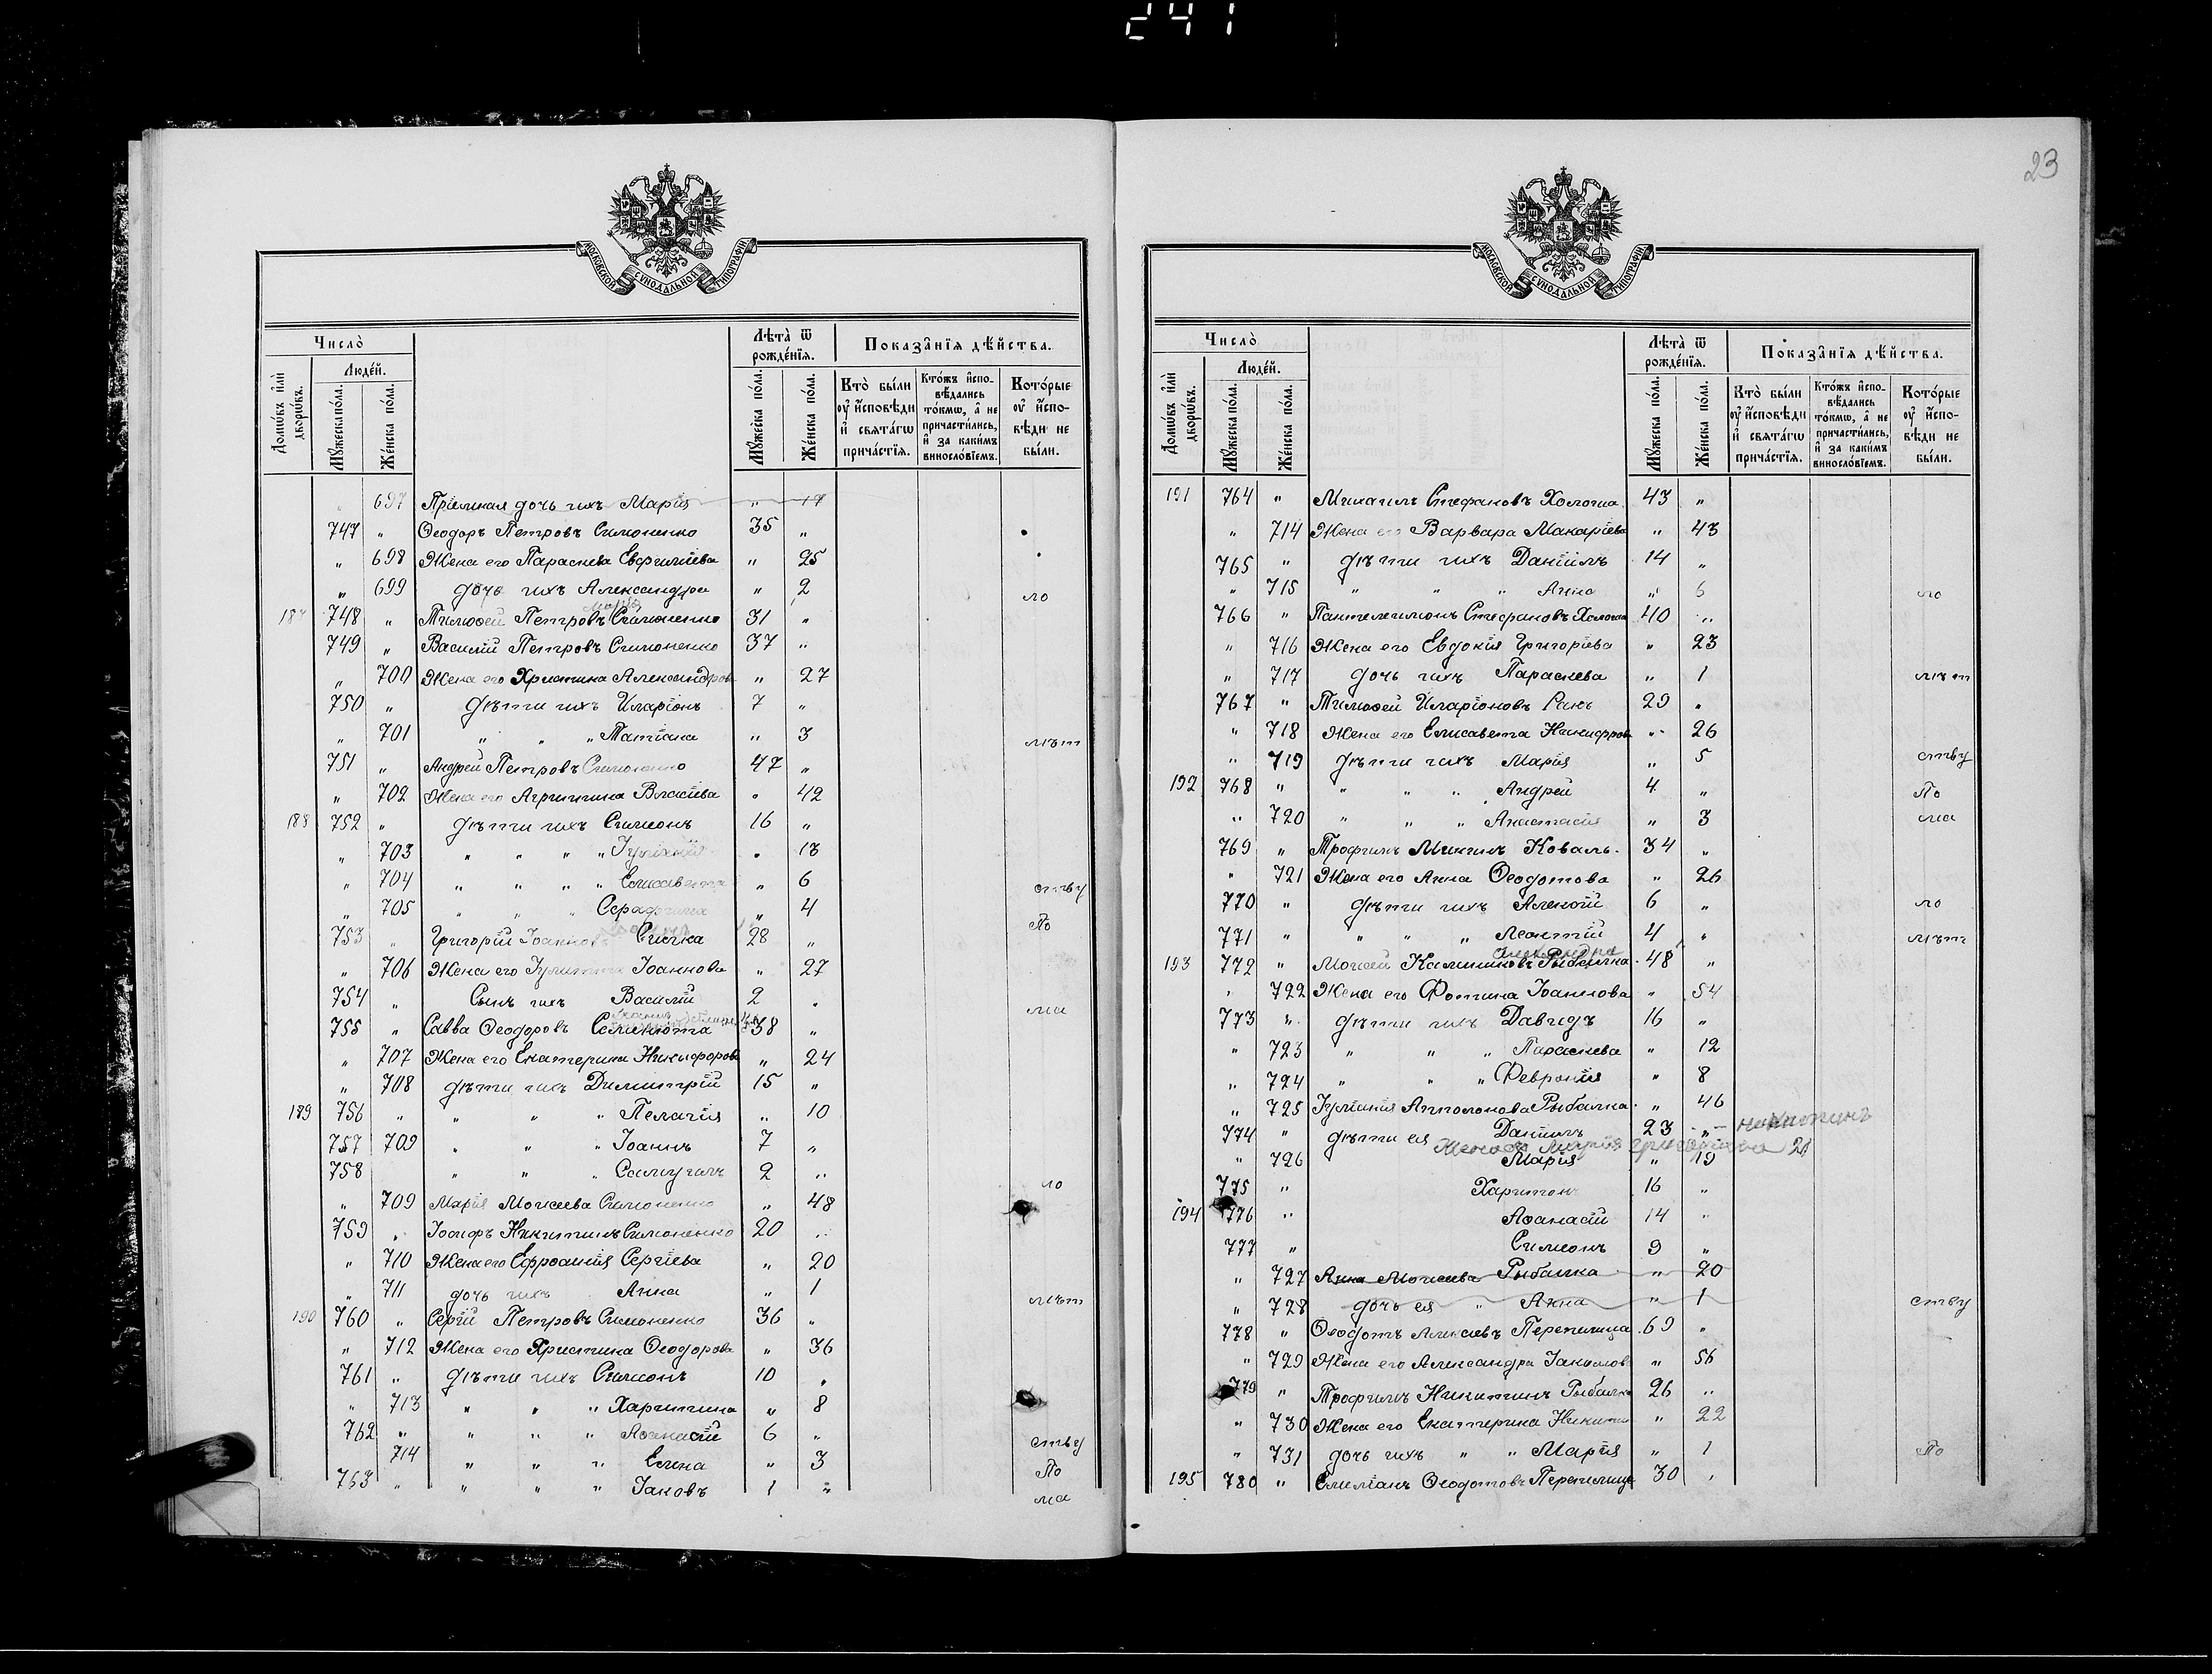 241
23
МОСКОВСКОЙ СѴНОДАЛЬНОЙ ТИПОГРАФІИ
Число̀
Лѣта̀ ѿ рожде́нїѧ.
Показа̂нїѧ дѣ́йства.
Домѡ́въ и҆лѝ дворѡ́въ.
Люде́й.
Мꙋ́жеска по́ла.
Же́нска по́ла.
Мꙋ́жеска по́ла.
Же́нска по́ла.
Кто̀ бы́ли ᲂу҆ и҆́сповѣди и҆ свѧта́гѡ прича́стїѧ.
Кто́жъ и҆спо-вѣ́дались то́кмѡ, а҆ не причасти́лись, и҆ за каки́мъ виносло́вїемъ.
Кото́рые ᲂу҆ и҆́спо-вѣди не бы́ли.
„ 697 Пріемная дочь ихъ Марія „ 17
747 „ Ѳеодоръ Петровъ Симоненко 35 „
„ 698 Жена его Параскева Евфиміева „ 25
„ 699 дочь ихъ Александра „ 2 ло
187 748 „ Тимоѳей Петровъ Симоненко 31 „
749 „ Василій Петровъ Симоненко 37 „
„ 700 Жена его Христина Александрова „ 27
750 „ дѣти ихъ Иларіонъ 7 „
„ 701 „ „ „ Татіана „ 3 лѣт
751 „ Андрей Петровъ Симоненко 47 „
„ 702 Жена его Агриппина Власіева „ 42
188 752 „ дѣти ихъ Симеонъ 16 „
„ 703 „ „ „ „ „ 13
„ 704 „ „ „ „ Елисавета „ 6 ству
„ 705 „ „ „ Серафима „ 4 По
753 „ Григорій Іоанновъ Сличка 28 „
„ 706 Жена его Іулитта Іоаннова „ 27
754 „ Сынъ ихъ Василій 2 „ ма
755 „ Савва Ѳеодоровъ Семенюта 38 „
„ 707 Жена его Екатерина Никифорова „ 24
„ 708 дѣти ихъ Димитрій 15 „
189 756 „ „ „ „ Пелагія „ 10
757 709 „ „ „ Іоаннъ 7 „
758 „ „ „ Самуилъ 2 „ ло
„ 709 Марія Моисеева Симоненко „ 48
759 „ Іосифъ Никитинъ Симоненко 20 „
„ 710 Жена его Ефросинія Сергіева „ 20
„ 711 дочь ихъ Анна „ 1 лѣт
190 760 „ Сергій Петровъ Симоненко 36 „
„ 712 Жена его Христина Ѳеодорова „ 36
761 „ дѣти ихъ Симеонъ 10 „
„ 713 „ „ „ Харитина „ 8
762 „ „ „ „ Аѳанасій 6 „ ству
714 „ „ „ Елена „ 3 По
763 „ „ „ „ Іаковъ 1 „ ма
МОСКОВСКОЙ СѴНОДАЛЬНОЙ ТИПОГРАФІИ
Число̀
Лѣта̀ ѿ рожде́нїѧ.
Показа̂нїѧ дѣ́йства.
Домѡ́въ и҆лѝ дворѡ́въ.
Люде́й.
Мꙋ́жеска по́ла.
Же́нска по́ла.
Мꙋ́жеска по́ла.
Же́нска по́ла.
Кто̀ бы́ли ᲂу҆ и҆́сповѣди и҆ свѧта́гѡ прича́стїѧ.
Кто́жъ и҆спо-вѣ́дались то́кмѡ, а҆ не причасти́лись, и҆ за каки́мъ виносло́вїемъ.
Кото́рые ᲂу҆ и҆́спо-вѣди не бы́ли.
191 764 „ Михаилъ Стефановъ Холоша 43 „
„ 714 Жена его Варвара Макаріева „ 43
765 „ дѣти ихъ Даніилъ 14 „
„ 715 „ „ „ Анна „ 6 ло
766 „ Пантелеимонъ Стефановъ Холоша 40 „
„ 716 Жена его Евдокія Григоріева „ 23
„ 717 дочь ихъ Параскева „ 1 лѣт
767 „ Тимоѳей Иларіоновъ Ракъ 29 „
„ 718 Жена его Елисавета Никифоров „ 26
„ 719 дѣти ихъ Марія „ 5 ству
192 768 „ „ „ „ Андрей 4 „ По
„ 720 „ „ „ Анастасія „ 3 ма
769 „ Трофимъ Микинъ Коваль 34 „
„ 721 Жена его Анна Ѳеодотова „ 26
770 „ дѣти ихъ Алексій 6 „ ло
771 „ „ „ „ Леонтій 4 „ лѣт
Александра
193 772 „ Моисей Калиниковъ Рыбалка 48 „
„ 722 Жена его Фотина Іоаннова „ 54
773 „ дѣти ихъ Давидъ 16 „
„ 723 „ „ „ Параскева „ 12
„ 724 „ „ „ Февронія „ 8
„ 725 Іуліанія Апполонова Рыбалка „ 46
774 „ дѣти ея Даніилъ 23 „
Жена его Марія 21
„ 726 Марія „ 19
775 „ Харитонъ 16 „
194 776 „ Аѳанасій 14 „
777 „ Симеонъ 9 „
„ 727 Анна Моисеева Рыбалка „ 20
„ 728 дочь ея „ Анна „ 1 ству
778 „ Ѳеодотъ Алексіевъ Перепелица 69 „
„ 729 Жена его Александра Іаковлев „ 56
779 „ Трофимъ Никитинъ Рыбалка 26 „
„ 730 Жена его Екатерина Никитин „ 22
„ 731 дочь ихъ „ „ Марія „ 1 По
195 780 „ Емиліанъ Ѳеодотовъ Перепелица 30 „